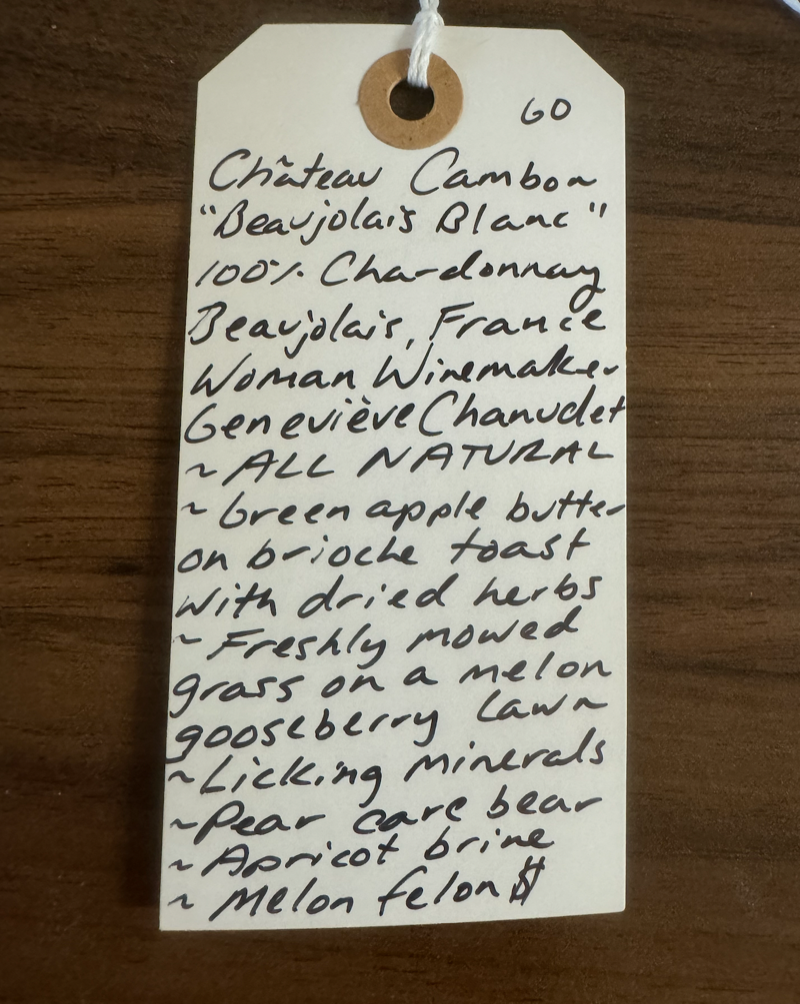 60
Château Cambon
"Beaujolais Blanc"
100% Chardonnay
Beaujolais, France
Woman Winemaker
Geneviève Chanudet
~ ALL NATURAL
~ Green apple butter
on brioche toast
with dried herbs
~ Freshly mowed
grass on a melon
gooseberry lawn
~ Licking minerals
~ Pear care bear
~ Apricot brine
~ Melon felon $